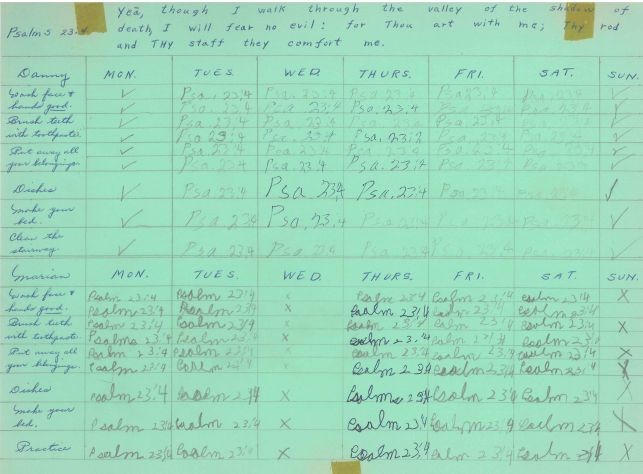 Psalms 23:4 Yea, though I walk through the valley of the shadow of
death, I will fear no evil: for Thou art with me; Thy rod
and THy staff they comfort me.
Danny MON. TUES. WED. THURS. FRI. SAT. SUN.
Wash face & ✓ Psa. 23:4 Psa. 23:4 Psa. 23:4 Psa 23:4 Psa. 23:4 ✓
hands good. ✓ Psa. 23:4 Psa. 23:4 Psa. 23:4 Psa. 23:4 Psa. 23:4 ✓
Brush teeth ✓ Psa. 23:4 Psa. 23:4 Psa. 23:4 Psa. 23:4 Psa. 23:4 ✓
with toothpaste. ✓ Psa 23:4 Psa. 23:4 Psa. 23:4 Psa. 23:4 Psa. 23:4 ✓
Put away all ✓ Psa 23:4 Psa. 23:4 Psa. 23:4 Psa. 23:4 Psa. 23:4 ✓
your belongings. ✓ Psa. 23:4 Psa. 23:4 Psa. 23:4 Psa. 23:4 Psa. 23:4 ✓
Dishes ✓ Psa. 23:4 Psa. 23:4 Psa. 23:4 Psa. 23:4 Psa. 23:4 ✓
Make your
bed. ✓ Psa 23:4 Psa. 23:4 Psa. 23:4 Psa. 23:4 Psa. 23:4 ✓
Clear the
stairway. ✓ Psa. 23:4 Psa. 23:4 Psa. 23:4 Psa. 23:4 Psa. 23:4 ✓
Marian MON. TUES. WED. THURS. FRI. SAT. SUN.
Wash face & Psalm 23:4 Psalm 23:4 x Psalm 23:4 Psalm 23:4 Psalm 23:4 X
hands good. Psalm 23:4 Psalm 23:4 x Psalm 23:4 Psalm 23:4 Psalm 23:4
Brush teeth Psalm 23:4 Psalm 23:4 x Psalm 23:4 Psalm 23:4 Psalm 23:4 X
with toothpaste. Psalms 23:4 Psalm 23:4 x Psalm 23:4 Psalm 23:4 Psalm 23:4
Put away all Psalm 23:4 Psalm 23:4 x Psalm 23:4 Psalm 23:4 Psalm 23:4 X
your belongings. Psalm 23:4 Psalm 23:4 x Psalm 23:4 Psalm 23:4 Psalm 23:4 X
Dishes Psalm 23:4 Psalm 23:4 X Psalm 23:4 Psalm 23:4 Psalm 23:4 X
Make your
bed. Psalm 23:4 Psalm 23:4 X Psalm 23:4 Psalm 23:4 Psalm 23:4 X
Practice Psalm 23:4 Psalm 23:4 X Psalm 23:4 Psalm 23:4 Psalm 23:4 X